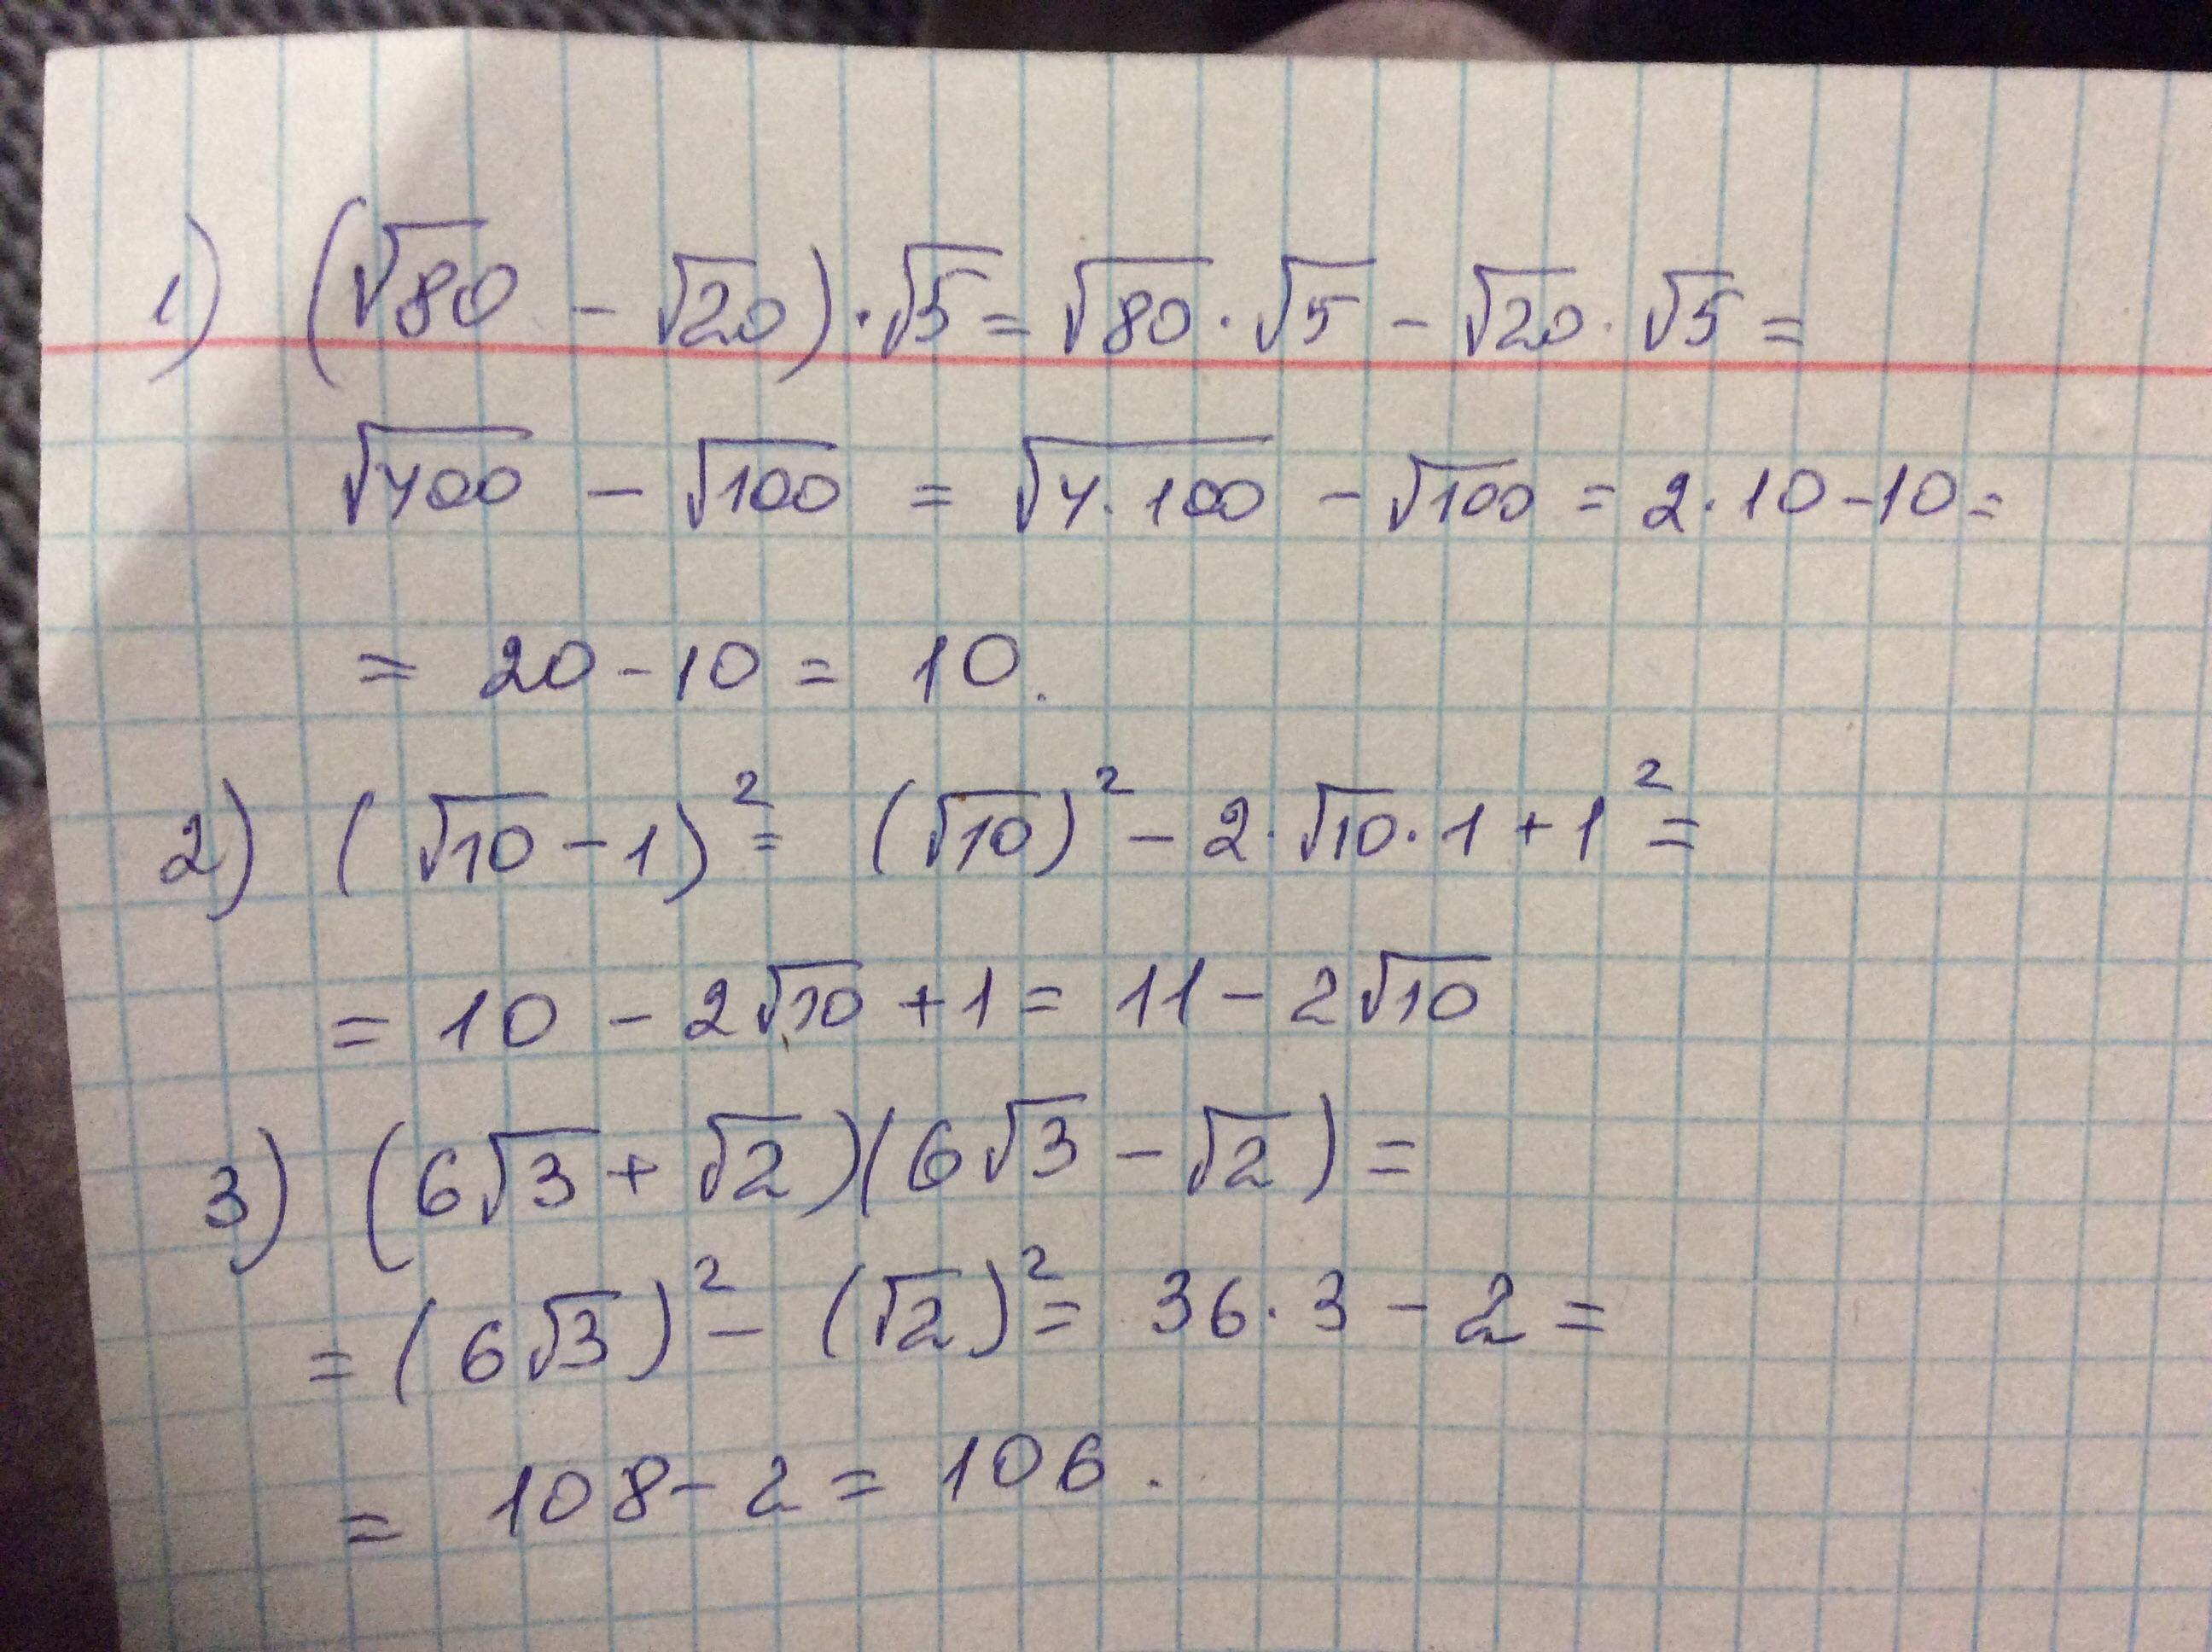 1) (√80 - √20) · √5 = √80 · √5 - √20 · √5 =
√400 - √100 = √4·100 - √100 = 2·10-10=
= 20-10 = 10.
2) (√10 - 1)² = (√10)² - 2·√10·1 + 1² =
= 10 - 2√10 + 1 = 11 - 2√10
3) (6√3 + √2)(6√3 - √2) =
= (6√3)² - (√2)² = 36·3 - 2 =
= 108 - 2 = 106.